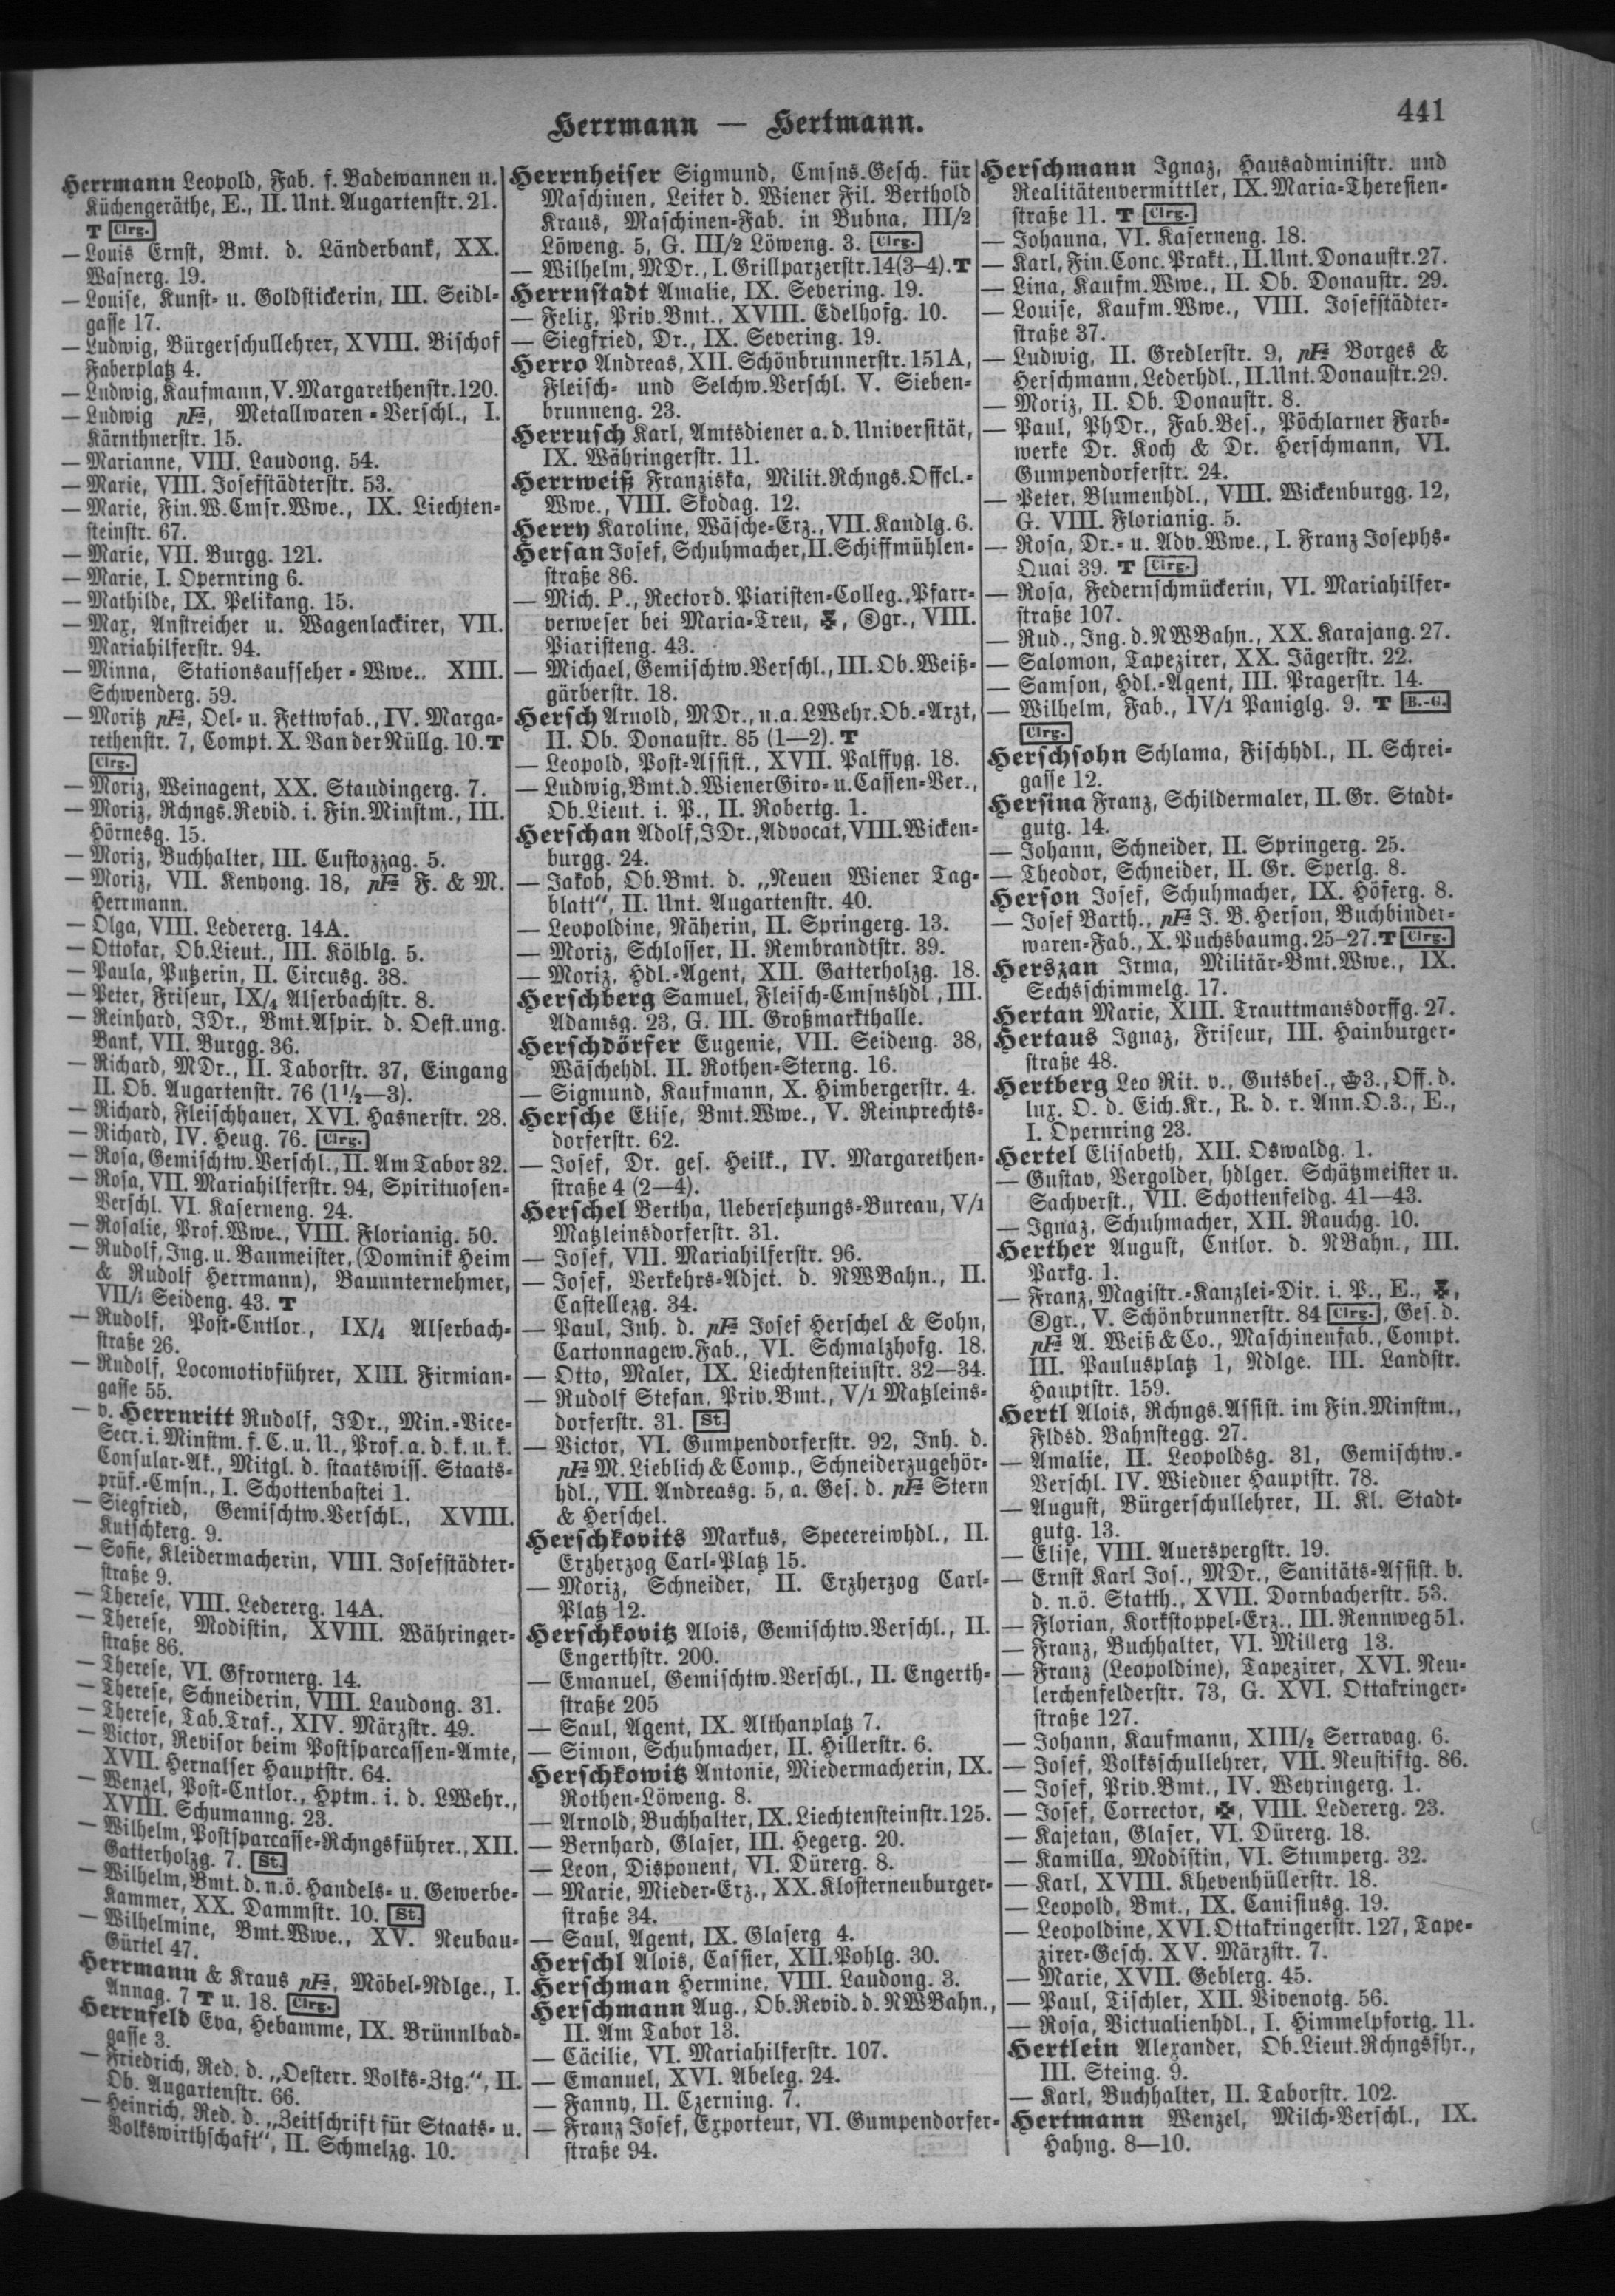 441
Herrmann — Hertmann.
Herrmann Leopold, Fab. f. Badewannen u.
Küchengeräthe, E., II. Unt. Augartenstr. 21.
T Clrg.
— Louis Ernst, Bmt. d. Länderbank, XX.
Wasnerg. 19.
— Louise, Kunst- u. Goldstickerin, III. Seidl-
gasse 17.
— Ludwig, Bürgerschullehrer, XVIII. Bischof
Faberplatz 4.
— Ludwig, Kaufmann, V. Margarethenstr. 120.
— Ludwig pFa, Metallwaren-Verschl., I.
Kärnthnerstr. 15.
— Marianne, VIII. Laudong. 54.
— Marie, VIII. Josefstädterstr. 53.
— Marie, Fin.W.Cmsr.Wwe., IX. Liechten-
steinstr. 67.
— Marie, VII. Burgg. 121.
— Marie, I. Opernring 6.
— Mathilde, IX. Pelikang. 15.
— Max, Anstreicher u. Wagenlackirer, VII.
Mariahilferstr. 94.
— Minna, Stationsaufseher-Wwe., XIII.
Schwenderg. 59.
— Moritz pFa, Oel- u. Fettwfab., IV. Marga-
rethenstr. 7, Compt. X. Van der Nüllg. 10. T
Clrg.
— Moriz, Weinagent, XX. Staudingerg. 7.
— Moriz, Rchngs.Revid. i. Fin.Minstm., III.
Hörnesg. 15.
— Moriz, Buchhalter, III. Custozzag. 5.
— Moriz, VII. Kenyong. 18, pFa F. & M.
Herrmann.
— Olga, VIII. Ledererg. 14A.
— Ottokar, Ob.Lieut., III. Kölblg. 5.
— Paula, Putzerin, II. Circusg. 38.
— Peter, Friseur, IX/4 Alserbachstr. 8.
— Reinhard, JDr., Bmt.Aspir. d. Oest.ung.
Bank, VII. Burgg. 36.
— Richard, MDr., II. Taborstr. 37, Eingang
II. Ob. Augartenstr. 76 (1½—3).
— Richard, Fleischhauer, XVI. Hasnerstr. 28.
— Richard, IV. Heug. 76. Clrg.
— Rosa, Gemischtw.Verschl., II. Am Tabor 32.
— Rosa, VII. Mariahilferstr. 94, Spirituosen-
Verschl. VI. Kaserneng. 24.
— Rosalie, Prof.Wwe., VIII. Florianig. 50.
— Rudolf, Ing. u. Baumeister, (Dominik Heim
& Rudolf Herrmann), Bauunternehmer,
VII/1 Seideng. 43. T
— Rudolf, Post-Cntlor., IX/4 Alserbach-
straße 26.
— Rudolf, Locomotivführer, XIII. Firmian-
gasse 55.
— v. Herrnritt Rudolf, JDr., Min.-Vice-
Secr. i. Minstm. f. C. u. U., Prof. a. d. k. u. k.
Consular-Ak., Mitgl. d. staatswiss. Staats-
prüf.-Cmsn., I. Schottenbastei 1.
— Siegfried, Gemischtw.Verschl., XVIII.
Kutschkerg. 9.
— Sofie, Kleidermacherin, VIII. Josefstädter-
straße 9.
— Therese, VIII. Ledererg. 14A.
— Therese, Modistin, XVIII. Währinger-
straße 86.
— Therese, VI. Gfrornerg. 14.
— Therese, Schneiderin, VIII. Laudong. 31.
— Therese, Tab.Traf., XIV. Märzstr. 49.
— Victor, Revisor beim Postsparcassen-Amte,
XVII. Hernalser Hauptstr. 64.
— Wenzel, Post-Cntlor., Hptm. i. d. LWehr.,
XVIII. Schumanng. 23.
— Wilhelm, Postsparcasse-Rchngsführer., XII.
Gatterholzg. 7. St.
— Wilhelm, Bmt. d. n.ö. Handels- u. Gewerbe-
Kammer, XX. Dammstr. 10. St.
— Wilhelmine, Bmt.Wwe., XV. Neubau-
Gürtel 47.
Herrmann & Kraus pFa, Möbel-Ndlge., I.
Annag. 7 T u. 18. Clrg.
Herrnfeld Eva, Hebamme, IX. Brünnlbad-
gasse 3.
— Friedrich, Red. d. „Oesterr. Volks-Ztg.“, II.
Ob. Augartenstr. 66.
— Heinrich, Red. d. „Zeitschrift für Staats- u.
Volkswirthschaft“, II. Schmelzg. 10.
Herrnheiser Sigmund, Cmsns.Gesch. für
Maschinen, Leiter d. Wiener Fil. Berthold
Kraus, Maschinen-Fab. in Bubna, III/2
Löweng. 5, G. III/2 Löweng. 3. Clrg.
— Wilhelm, MDr., I. Grillparzerstr. 14 (3–4). T
Herrnstadt Amalie, IX. Severing. 19.
— Felix, Priv.Bmt., XVIII. Edelhofg. 10.
— Siegfried, Dr., IX. Severing. 19.
Herro Andreas, XII. Schönbrunnerstr. 151A,
Fleisch- und Selchw.Verschl. V. Sieben-
brunneng. 23.
Herrusch Karl, Amtsdiener a. d. Universität,
IX. Währingerstr. 11.
Herrweiß Franziska, Milit.Rchngs.Offcl.-
Wwe., VIII. Skodag. 12.
Herry Karoline, Wäsche-Erz., VII. Kandlg. 6.
Hersan Josef, Schuhmacher, II. Schiffmühlen-
straße 86.
— Mich. P., Rector d. Piaristen-Colleg., Pfarr-
verweser bei Maria-Treu, Ⓢgr., VIII.
Piaristeng. 43.
— Michael, Gemischtw.Verschl., III. Ob. Weiß-
gärberstr. 18.
Hersch Arnold, MDr., u. a. LWehr.Ob.-Arzt,
II. Ob. Donaustr. 85 (1—2). T
— Leopold, Post-Assist., XVII. Palffyg. 18.
— Ludwig, Bmt. d. Wiener Giro- u. Cassen-Ver.,
Ob.Lieut. i. P., II. Robertg. 1.
Herschan Adolf, JDr., Advocat, VIII. Wicken-
burgg. 24.
— Jakob, Ob.Bmt. d. „Neuen Wiener Tag-
blatt“, II. Unt. Augartenstr. 40.
— Leopoldine, Näherin, II. Springerg. 13.
— Moriz, Schlosser, II. Rembrandtstr. 39.
— Moriz, Hdl.-Agent, XII. Gatterholzg. 18.
Herschberg Samuel, Fleisch-Cmsnshdl., III.
Adamsg. 23, G. III. Großmarkthalle.
Herschdörfer Eugenie, VII. Seideng. 38,
Wäschehdl. II. Rothen-Sterng. 16.
— Sigmund, Kaufmann, X. Himbergerstr. 4.
Hersche Elise, Bmt.Wwe., V. Reinprechts-
dorferstr. 62.
— Josef, Dr. ges. Heilk., IV. Margarethen-
straße 4 (2—4).
Herschel Bertha, Uebersetzungs-Bureau, V/1
Matzleinsdorferstr. 31.
— Josef, VII. Mariahilferstr. 96.
— Josef, Verkehrs-Adjct. d. NWBahn., II.
Castellezg. 34.
— Paul, Inh. d. pFa Josef Herschel & Sohn,
Cartonnagew.Fab., VI. Schmalzhofg. 18.
— Otto, Maler, IX. Liechtensteinstr. 32—34.
— Rudolf Stefan, Priv.Bmt., V/1 Matzleins-
dorferstr. 31. St.
— Victor, VI. Gumpendorferstr. 92, Inh. d.
pFa M. Lieblich & Comp., Schneiderzugehör-
hdl., VII. Andreasg. 5, a. Ges. d. pFa Stern
& Herschel.
Herschkovits Markus, Specereiwhdl., II.
Erzherzog Carl-Platz 15.
— Moriz, Schneider, II. Erzherzog Carl-
Platz 12.
Herschkovitz Alois, Gemischtw.Verschl., II.
Engerthstr. 200.
— Emanuel, Gemischtw.Verschl., II. Engerth-
straße 205
— Saul, Agent, IX. Althanplatz 7.
— Simon, Schuhmacher, II. Hillerstr. 6.
Herschkowitz Antonie, Miedermacherin, IX.
Rothen-Löweng. 8.
— Arnold, Buchhalter, IX. Liechtensteinstr. 125.
— Bernhard, Glaser, III. Hegerg. 20.
— Leon, Disponent, VI. Dürerg. 8.
— Marie, Mieder-Erz., XX. Klosterneuburger-
straße 34.
— Saul, Agent, IX. Glaserg 4.
Herschl Alois, Cassier, XII. Pohlg. 30.
Herschman Hermine, VIII. Laudong. 3.
Herschmann Aug., Ob.Revid. d. NWBahn.,
II. Am Tabor 13.
— Cäcilie, VI. Mariahilferstr. 107.
— Emanuel, XVI. Abeleg. 24.
— Fanny, II. Czerning. 7.
— Franz Josef, Exporteur, VI. Gumpendorfer-
straße 94.
Herschmann Ignaz, Hausadministr. und
Realitätenvermittler, IX. Maria-Theresien-
straße 11. T Clrg.
— Johanna, VI. Kaserneng. 18.
— Karl, Fin.Conc.Prakt., II. Unt. Donaustr. 27.
— Lina, Kaufm.Wwe., II. Ob. Donaustr. 29.
— Louise, Kaufm.Wwe., VIII. Josefstädter-
straße 37.
— Ludwig, II. Gredlerstr. 9, pFa Borges &
Herschmann, Lederhdl., II. Unt. Donaustr. 29.
— Moriz, II. Ob. Donaustr. 8.
— Paul, PhDr., Fab.Bes., Pöchlarner Farb-
werke Dr. Koch & Dr. Herschmann, VI.
Gumpendorferstr. 24.
— Peter, Blumenhdl., VIII. Wickenburgg. 12,
G. VIII. Florianig. 5.
— Rosa, Dr.- u. Adv.Wwe., I. Franz Josephs-
Quai 39. T Clrg.
— Rosa, Federnschmückerin, VI. Mariahilfer-
straße 107.
— Rud., Ing. d. NWBahn., XX. Karajang. 27.
— Salomon, Tapezirer, XX. Jägerstr. 22.
— Samson, Hdl.-Agent, III. Pragerstr. 14.
— Wilhelm, Fab., IV/1 Paniglg. 9. T B.-G.
Clrg.
Herschsohn Schlama, Fischhdl., II. Schrei-
gasse 12.
Hersina Franz, Schildermaler, II. Gr. Stadt-
gutg. 14.
— Johann, Schneider, II. Springerg. 25.
— Theodor, Schneider, II. Gr. Sperlg. 8.
Herson Josef, Schuhmacher, IX. Höferg. 8.
— Josef Barth., pFa J. B. Herson, Buchbinder-
waren-Fab., X. Puchsbaumg. 25–27. T Clrg.
Herszan Irma, Militär-Bmt.Wwe., IX.
Sechsschimmelg. 17.
Hertan Marie, XIII. Trauttmansdorffg. 27.
Hertaus Ignaz, Friseur, III. Hainburger-
straße 48.
Hertberg Leo Rit. v., Gutsbes., 3., Off. d.
lux. O. d. Eich.Kr., R. d. r. Ann.O.3., E.,
I. Opernring 23.
Hertel Elisabeth, XII. Oswaldg. 1.
— Gustav, Vergolder, hdlger. Schätzmeister u.
Sachverst., VII. Schottenfeldg. 41—43.
— Ignaz, Schuhmacher, XII. Rauchg. 10.
Herther August, Cntlor. d. NBahn., III.
Parkg. 1.
— Franz, Magistr.-Kanzlei-Dir. i. P., E.,
Ⓢgr., V. Schönbrunnerstr. 84 Clrg., Ges. d.
pFa A. Weiß & Co., Maschinenfab., Compt.
III. Paulusplatz 1, Ndlge. III. Landstr.
Hauptstr. 159.
Hertl Alois, Rchngs.Assist. im Fin.Minstm.,
Fldsd. Bahnstegg. 27.
— Amalie, II. Leopoldsg. 31, Gemischtw.-
Verschl. IV. Wiedner Hauptstr. 78.
— August, Bürgerschullehrer, II. Kl. Stadt-
gutg. 13.
— Elise, VIII. Auerspergstr. 19.
— Ernst Karl Jos., MDr., Sanitäts-Assist. b.
d. n.ö. Statth., XVII. Dornbacherstr. 53.
— Florian, Korkstoppel-Erz., III. Rennweg 51.
— Franz, Buchhalter, VI. Millerg 13.
— Franz (Leopoldine), Tapezirer, XVI. Neu-
lerchenfelderstr. 73, G. XVI. Ottakringer-
straße 127.
— Johann, Kaufmann, XIII/2 Serravag. 6.
— Josef, Volksschullehrer, VII. Neustiftg. 86.
— Josef, Priv.Bmt., IV. Weyringerg. 1.
— Josef, Corrector, ✠, VIII. Ledererg. 23.
— Kajetan, Glaser, VI. Dürerg. 18.
— Kamilla, Modistin, VI. Stumperg. 32.
— Karl, XVIII. Khevenhüllerstr. 18.
— Leopold, Bmt., IX. Canisiusg. 19.
— Leopoldine, XVI. Ottakringerstr. 127, Tape-
zirer-Gesch. XV. Märzstr. 7.
— Marie, XVII. Geblerg. 45.
— Paul, Tischler, XII. Vivenotg. 56.
— Rosa, Victualienhdl., I. Himmelpfortg. 11.
Hertlein Alexander, Ob.Lieut.Rchngsfhr.,
III. Steing. 9.
— Karl, Buchhalter, II. Taborstr. 102.
Hertmann Wenzel, Milch-Verschl., IX.
Hahng. 8—10.